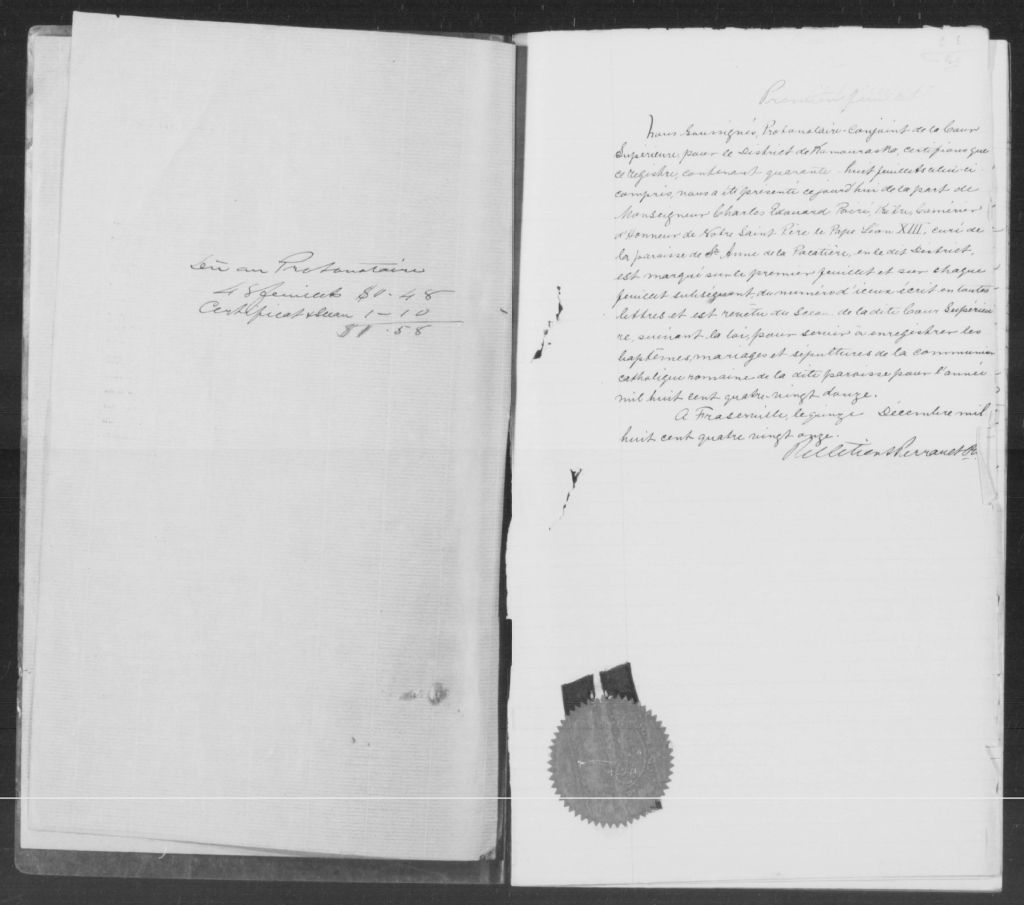 Dû au Protonotaire
48 feuillets $0.48
Certificat & Sceau 1-10
$1.58
Premier feuillet
Nous Soussignés, Protonotaire-Conjoint de la Cour
Supérieure, pour le District de Kamouraska, certifions que
ce régistre, contenant quarante-huit feuillets celui-ci
compris, nous a été présenté ce jourd'hui de la part de
Monseigneur Charles Edouard Poiré, Ptre, Camérier
d'Honneur de Notre Saint Père le Pape Léon XIII, curé de
la paroisse de Ste Anne de la Pocatière, en le dit District,
est marqué sur le premier feuillet et sur chaque
feuillet subséquent, du numéro d'iceux écrit en toutes
lettres et est revêtu du Sceau de la dite Cour Supérieu
re, suivant la loi, pour servir à enregistrer les
baptêmes, mariages et sépultures de la communion
catholique romaine de la dite paroisse pour l'année
mil huit cent quatre-vingt douze.
A Fraserville, le quinze Décembre mil
huit cent quatre vingt onze.
Pelletier & Perrault